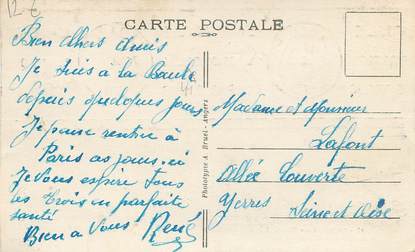 12 €
CARTE POSTALE
Bien chers amis
Je suis à la Baule
depuis quelques jours
Je pense rentrer à
Paris ces jours-ci
Je vous espère tous
les trois en parfaite
santé
Bien à vous René
Phototypie A. Bruel - Angers
Madame et Monsieur
Lafont
Allée Couverte
Yerres Seine et Oise